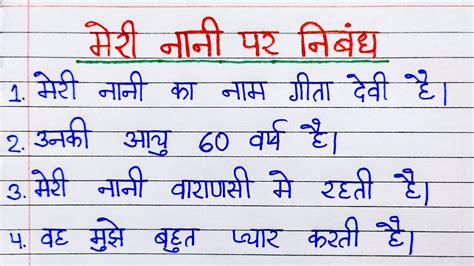 मेरी नानी पर निबंध
1. मेरी नानी का नाम गीता देवी है।
2. उनकी आयु 60 वर्ष है।
3. मेरी नानी वाराणसी मे रहती है।
4. वह मुझे बहुत प्यार करती है।